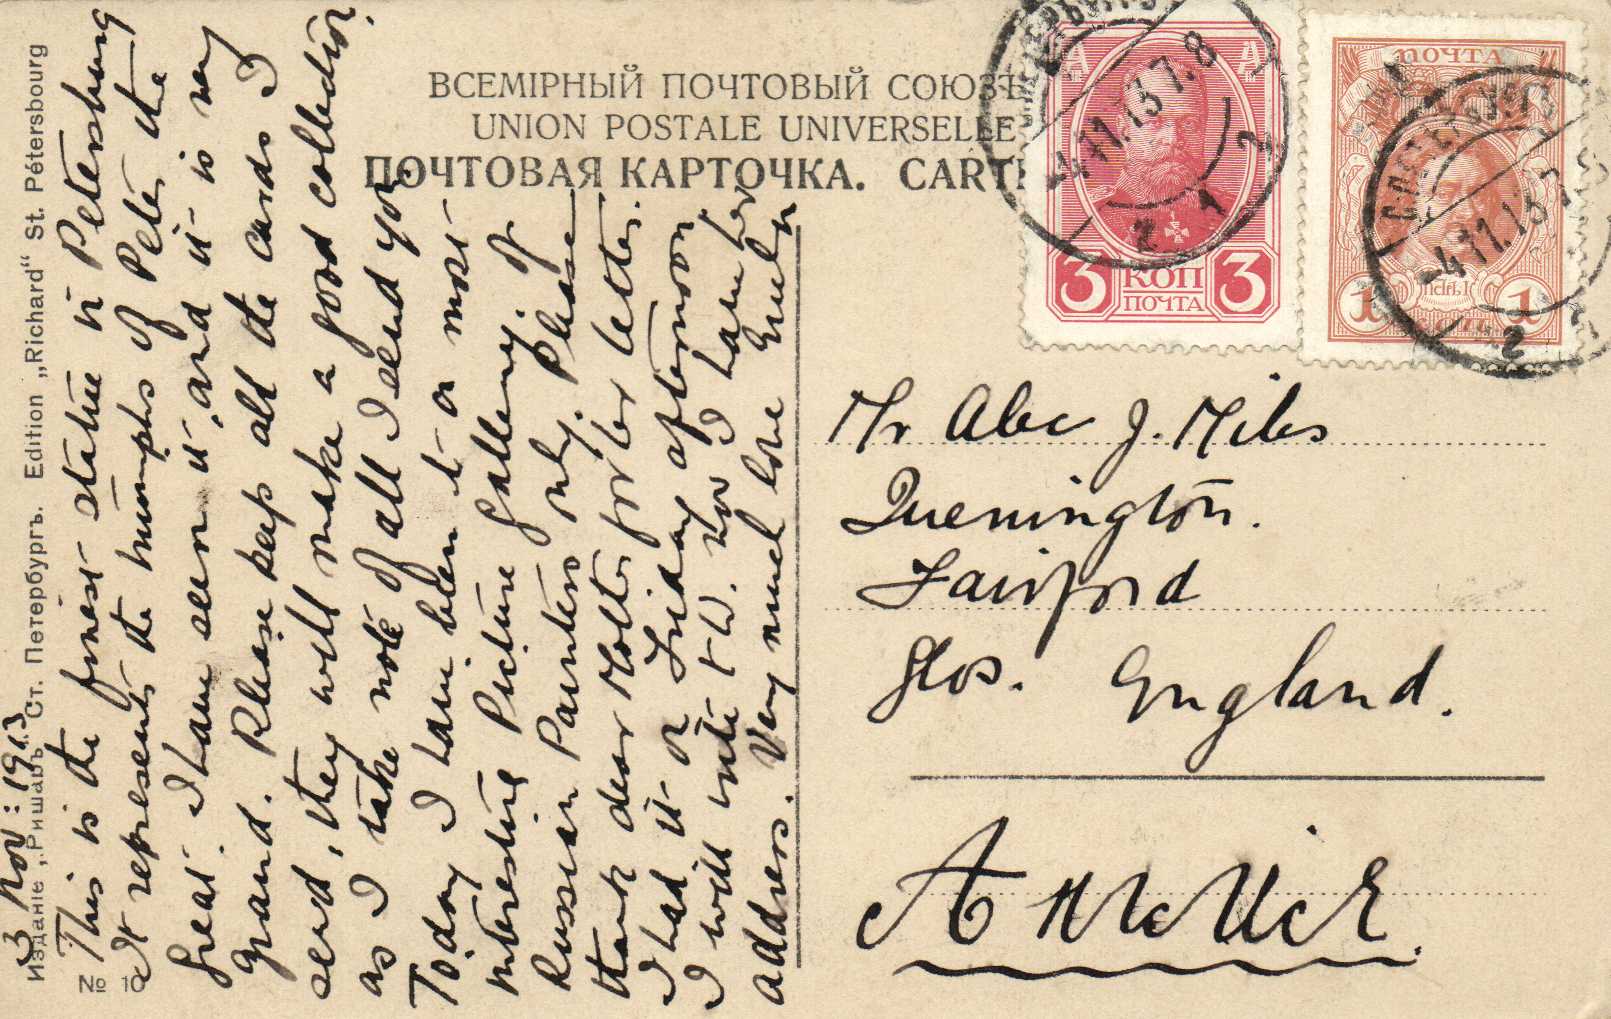 ВСЕМІРНЫЙ ПОЧТОВЫЙ СОЮЗЪ
UNION POSTALE UNIVERSELLE
ПОЧТОВАЯ КАРТОЧКА. CART
3 КОП 3
ПОЧТА
4.11.13 7.8
2
1
2
ПОЧТА
1 1
С.ПЕТЕРБУРГЪ
-4.11.13
2
Mr Alec J. Miles
Quenington.
Fairford
Glos. England.
Изданіе „Ришаръ“ Ст. Петербургъ. Edition „Richard“ St. Pétersbourg
№ 10
3 Nov: 1913
This is the finest statue in Petersburg
It represents the triumphs of Peter the
Great. I have seen it, and it is very
grand. Please keep all the cards I
send, they will make a good collection
as I take note of all I send you.
Today I have been to a most
interesting Picture Gallery. of
Russian Painters only. Please
thank dear for her letter.
I had it on Friday afternoon
I will write to W. I have her
address. Very much love